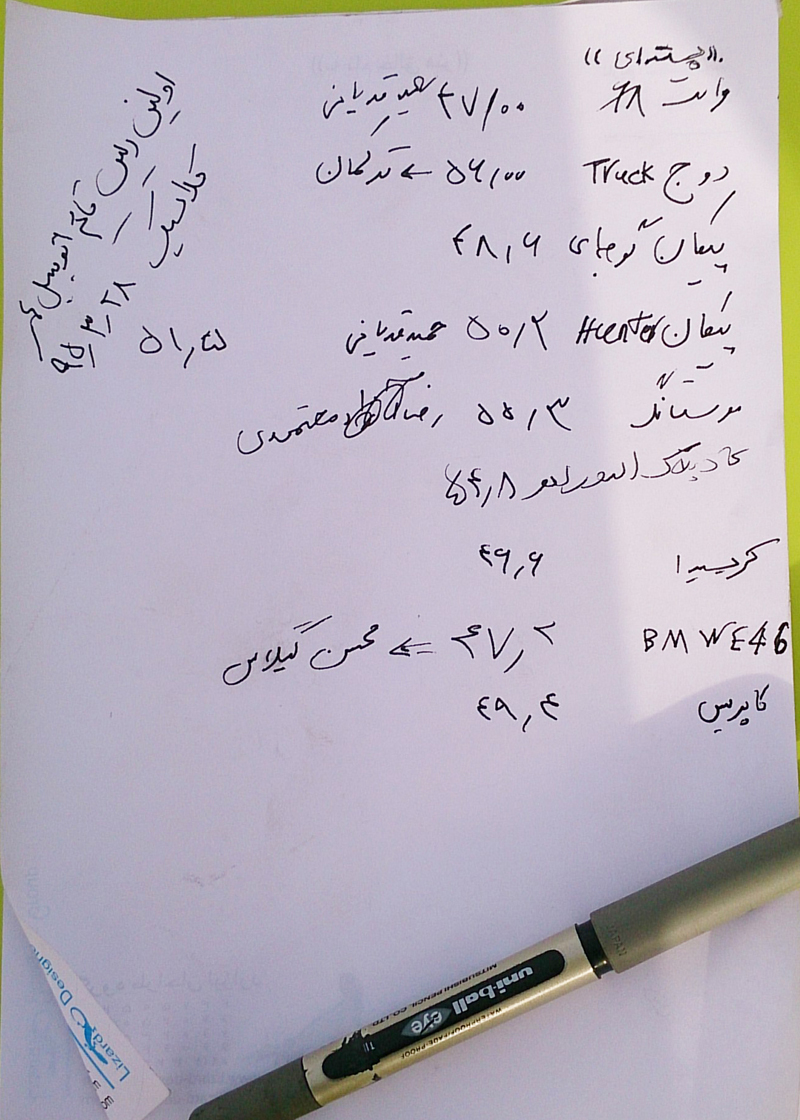 «پسته‌ای»
وانت ۴۷/۰۰ قدیانی
دوج Truck ۵۶,۰۰ ← ترکمان
پیکان گوجه‌ای ۴۸,۶
پیکان Hunter ۵۰,۲ حمید قدیانی ۵۱,۵
موستانگ ۵۵,۳ رضا معتمدی
کادیلاک ۵۴,۸
کرسیدا ۴۹,۶
BMW E46 ۴۷,۲ ← محسن گیلاس
کاپریس ۴۹,۴
اولین رالی تایم اتومبیل
کلاسیک ۹۵,۳,۲۸
uni-ball
eye
MITSUBISHI PENCIL CO. LTD.
WATERPROOF/FADE-PROOF
JAPAN
Lizard Design